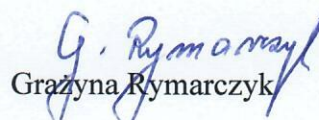 G. Rymarczyk
Grażyna Rymarczyk